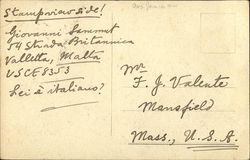 Stampview side!
Giovanni Sammut
54 Strada Britannica
Valletta, Malta
USCE8353
Sei è italiano?
Mr
F. J. Valente
Mansfield
Mass., U.S.A.